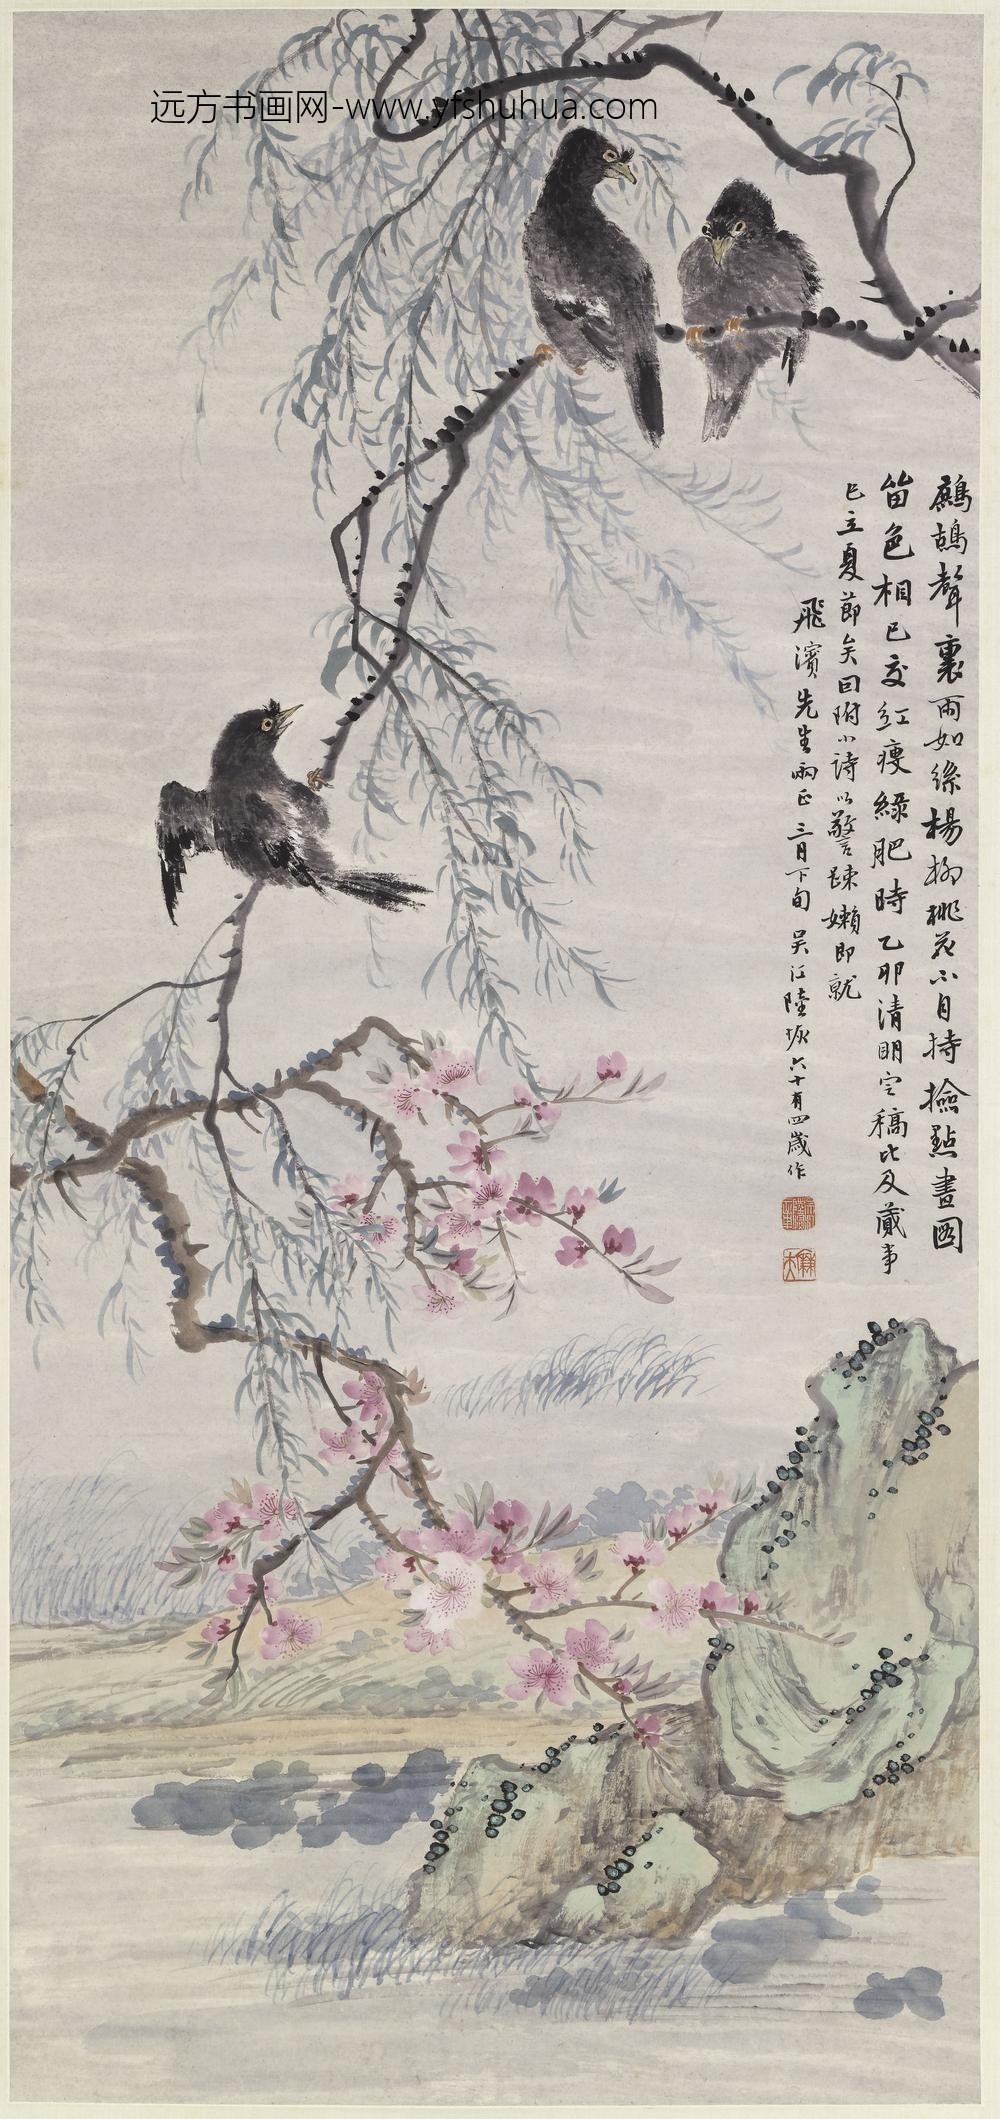 远方书画网-www.yfshuhua.com
鷓鴣聲裏雨如絲楊柳桃花二月時撿點畫圖
留色相已交紅瘦綠肥時乙卯清明定稿比及蕆事
已立夏節矣因附小詩以警踈嬾即就
飛濱先生兩正三月下旬吳江陸恢六十有四歲作